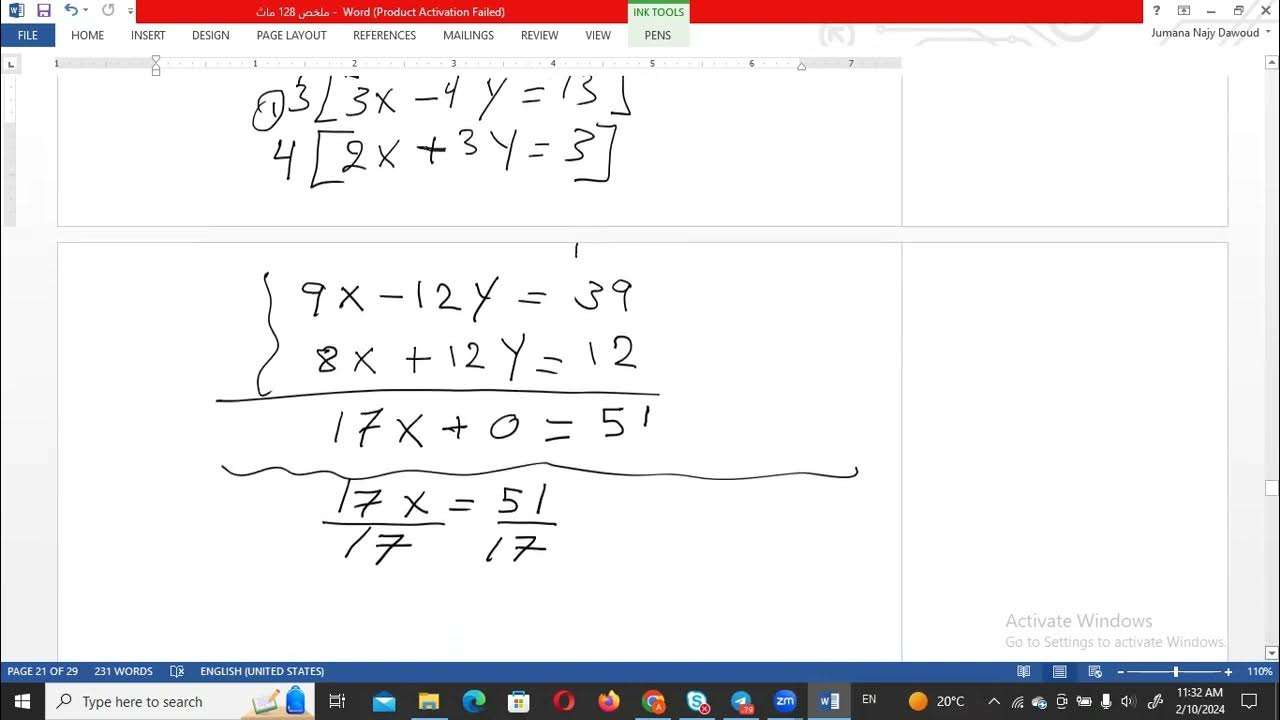 ملخص 128 ماث - Word (Product Activation Failed)
INK TOOLS
?
FILE HOME INSERT DESIGN PAGE LAYOUT REFERENCES MAILINGS REVIEW VIEW PENS
Jumana Najy Dawoud
1 1 2 3 4 5 6 7
3[3x - 4y = 13]
4[2x + 3y = 3]
9x - 12y = 39
8x + 12y = 12
17x + 0 = 51
17x = 51
17 17
Activate Windows
Go to Settings to activate Windows.
PAGE 21 OF 29 231 WORDS ENGLISH (UNITED STATES) 110%
Type here to search
EN 20°C
11:32 AM
2/10/2024